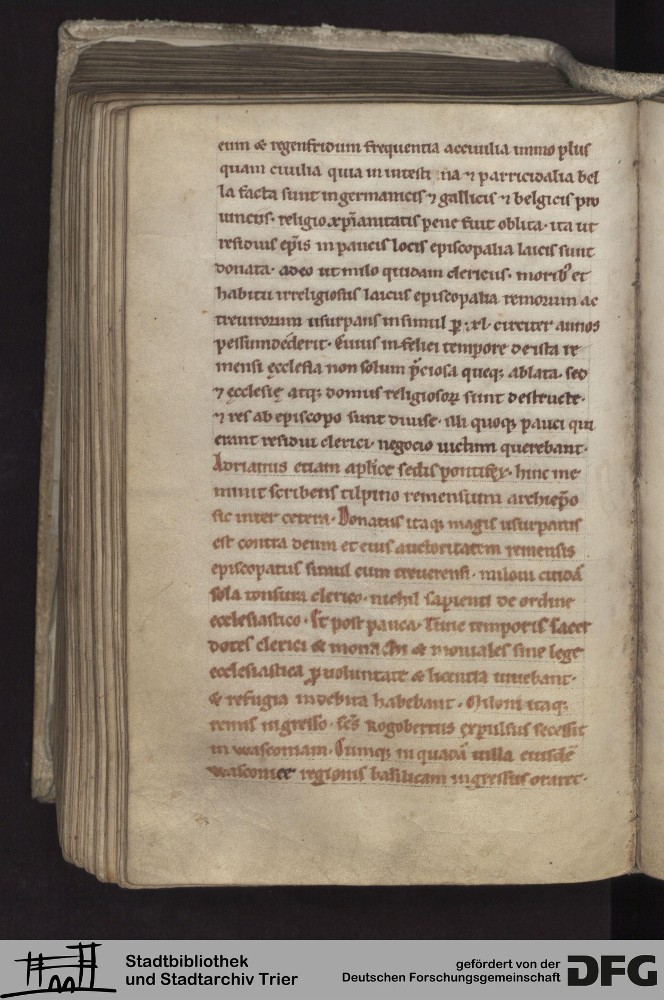 eum & regenfridum frequentia acciuilia immo plus
quam ciuilia quia in intesti na ⁊ parricidalia bel
la facta sunt ingermanicis ⁊ gallicis ⁊ belgicis pro
uinciis· religio xp̄ianitatis pene fuit oblita· ita ut
residuis ep̄is in paucis locis episcopalia laicis sunt
donata· adeo ut milo quidam clericus· morib; et
habitu irreligiosus laicus episcopalia remorum ac
treuirorum usurpans insimul ꝑ ·xl· circiter annos
pessundederit· Cuius infelici tempore de ista re
mensi ęcclesia non solum p̄ciosa queq; ablata· sed
⁊ ęcclesię atq; domus religiosoꝝ sunt destructe·
⁊ res ab episcopo sunt diuise· illi quoq; pauci qui
erant residui clerici· negocio uictum querebant·
Adrianus etiam aplice sedis pontifex· hinc me
minit scribens tilpino remensium archiep̄o
sic inter cetera· Donatus itaq; magis usurpatus
est contra deum et eius auctoritatem remensis
episcopatus simul cum treuerensi· miloni cuidā
sola tonsura clerico· nichil sapienti de ordine
ecclesiastico· Et post pauca· Tunc temporis sacer
dotes clerici & monachi & moniales sine lege
ecclesiastica ꝑ uoluntate & licentia uiuebant·
& refugia indebita habebant· Miloni itaq;
remis ingresso· sc̄s Rogobertus expulsus secessit
in wasconiam· Cumq; in quadā uilla eiusdē
wasconice regionis basilicam ingressus oraret·
Stadtbibliothek
und Stadtarchiv Trier
gefördert von der
Deutschen Forschungsgemeinschaft
DFG